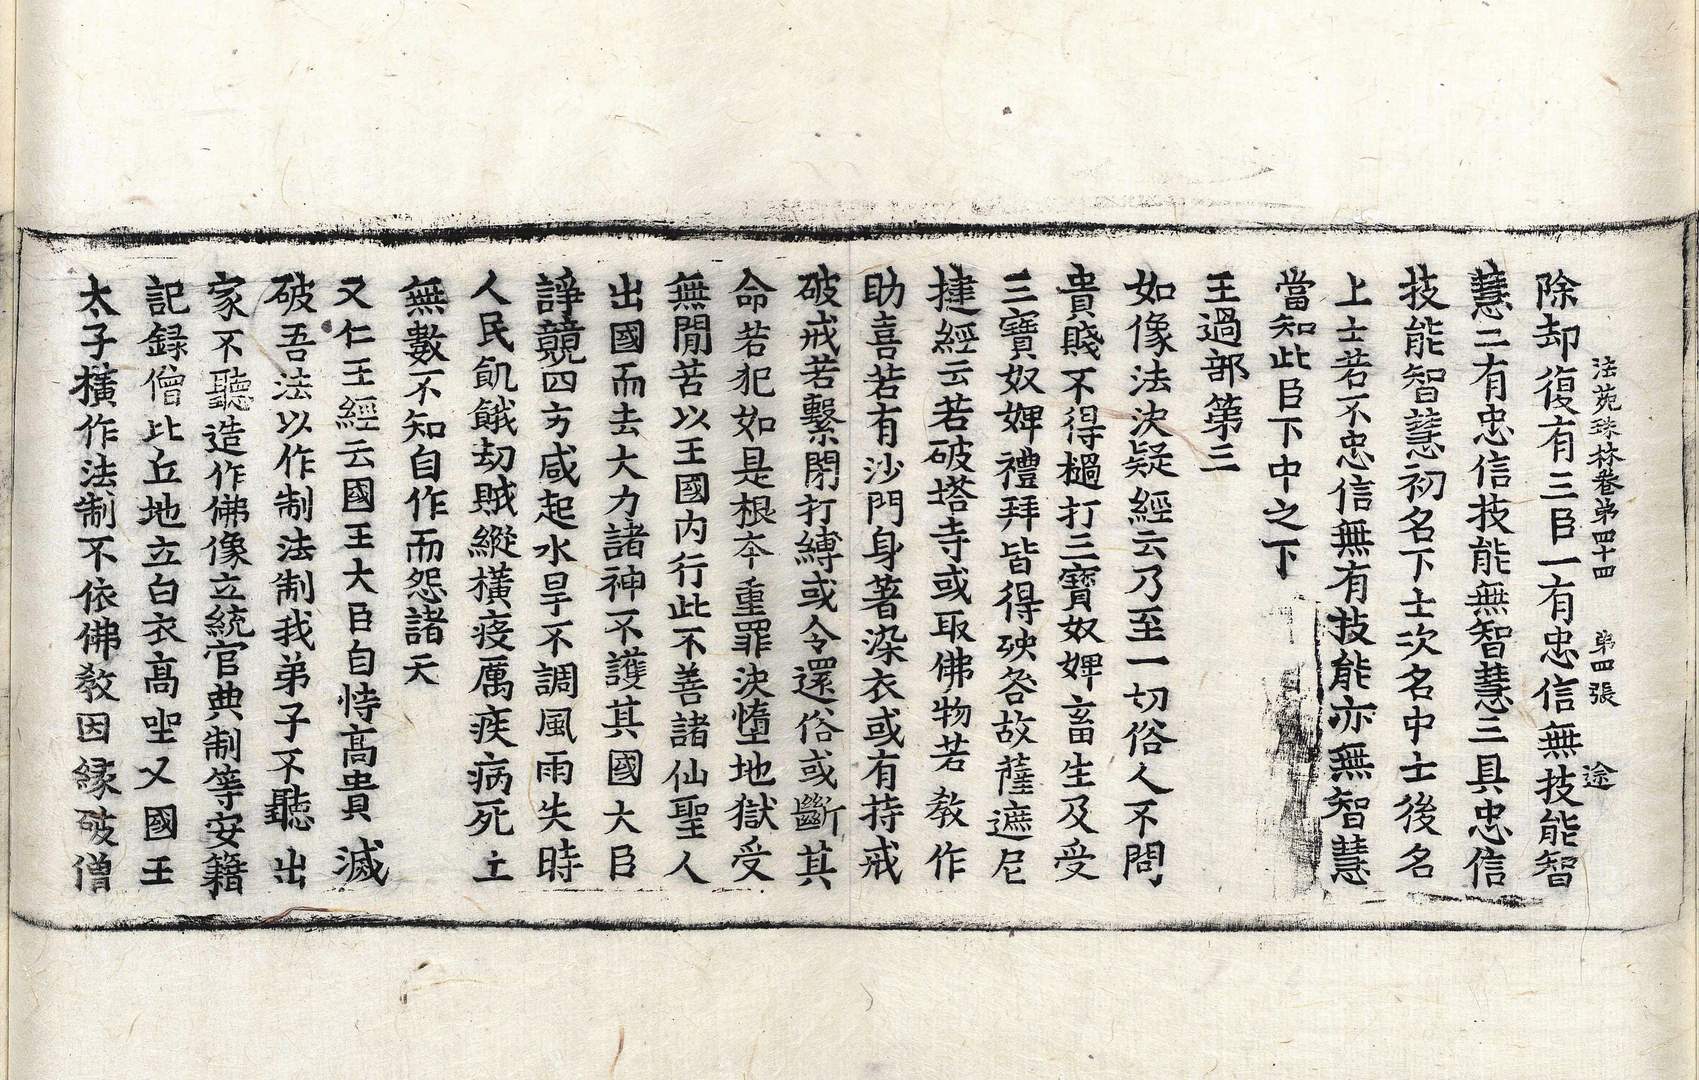 法苑珠林卷第四十四 第四張 途
除却復有三臣一有忠信無技能智
慧二有忠信技能無智慧三具忠信
技能智慧初名下士次名中士後名
上士若不忠信無有技能亦無智慧
當知此臣下中之下
王過部第三
如像法決疑經云乃至一切俗人不問
貴賤不得檛打三寶奴婢畜生及受
三寶奴婢禮拜皆得殃咎故薩遮尼
揵經云若破塔寺或取佛物若教作
助喜若有沙門身著染衣或有持戒
破戒若繫閉打縛或令還俗或斷其
命若犯如是根夲重罪決墮地獄受
無閒苦以王國内行此不善諸仙聖人
出國而去大力諸神不護其國大臣
諍競四方咸起水旱不調風雨失時
人民飢餓劫賊縱橫疫厲疾病死亡
無數不知自作而怨諸天
又仁王經云國王大臣自恃高貴滅
破吾法以作制法制我弟子不聽出
家不聽造作佛像立統官典制等安籍
記録僧比丘地立白衣高坐又國王
太子橫作法制不依佛教因緣破僧